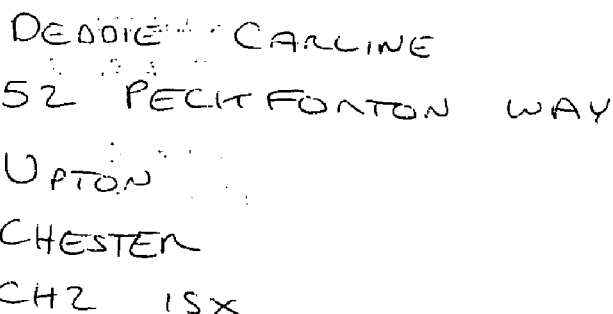 DEBBIE CARLINE
52 PECKFORTON WAY
UPTON
CHESTER
CH2 1SX